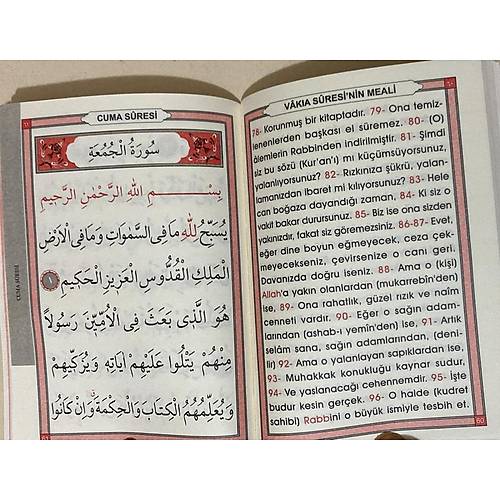 VÂKIA SÛRESİ'NİN MEALİ
78- Korunmuş bir kitaptadır. 79- Ona temiz-
lenenlerden başkası el süremez. 80- (O)
âlemlerin Rabbinden indirilmiştir. 81- Şimdi
siz bu sözü (Kur'an'ı) mı küçümsüyorsunuz,
yalanlıyorsunuz? 82- Rızkınıza şükrü, yalan-
lamanızdan ibaret mi kılıyorsunuz? 83- Hele
can boğaza dayandığı zaman. 84- Ki siz o
vakit bakar durursunuz. 85- Biz ise ona sizden
yakınızdır, fakat siz göremezsiniz. 86-87- Evet,
eğer dine boyun eğmeyecek, ceza çek-
meyecekseniz, çevirsenize o canı geri.
Davanızda doğru iseniz. 88- Ama o (kişi)
Allah'a yakın olanlardan (mukarrebîn'den)
ise, 89- Ona rahatlık, güzel rızık ve naîm
cenneti vardır. 90- Eğer o sağın adam-
larından (ashab-ı yemîn'den) ise, 91- Artık
selâm sana, sağın adamlarından, (deni-
lir) 92- Ama o yalanlayan sapıklardan ise,
93- Muhakkak konukluğu kaynar sudur.
94- Ve yaslanacağı cehennemdir. 95- İşte
budur kesin gerçek. 96- O halde (kudret
sahibi) Rabbini o büyük ismiyle tesbih et.
60
CUMA SÛRESİ
سُورَةُ الْجُمُعَةِ
بِسْمِ اللّٰهِ الرَّحْمٰنِ الرَّحِيمِ
يُسَبِّحُ لِلّٰهِ مَا فِى السَّمٰوَاتِ وَمَا فِى الْاَرْضِ
الْمَلِكِ الْقُدُّوسِ الْعَزِيزِ الْحَكِيمِ ١
هُوَ الَّذِى بَعَثَ فِى الْاُمِّيّنَ رَسُولًا
مِنْهُمْ يَتْلُوا عَلَيْهِمْ اٰيَاتِهِ وَيُزَكِّيهِمْ
وَيُعَلِّمُهُمُ الْكِتَابَ وَالْحِكْمَةَ وَاِنْ كَانُوا
CUMA SÛRESİ